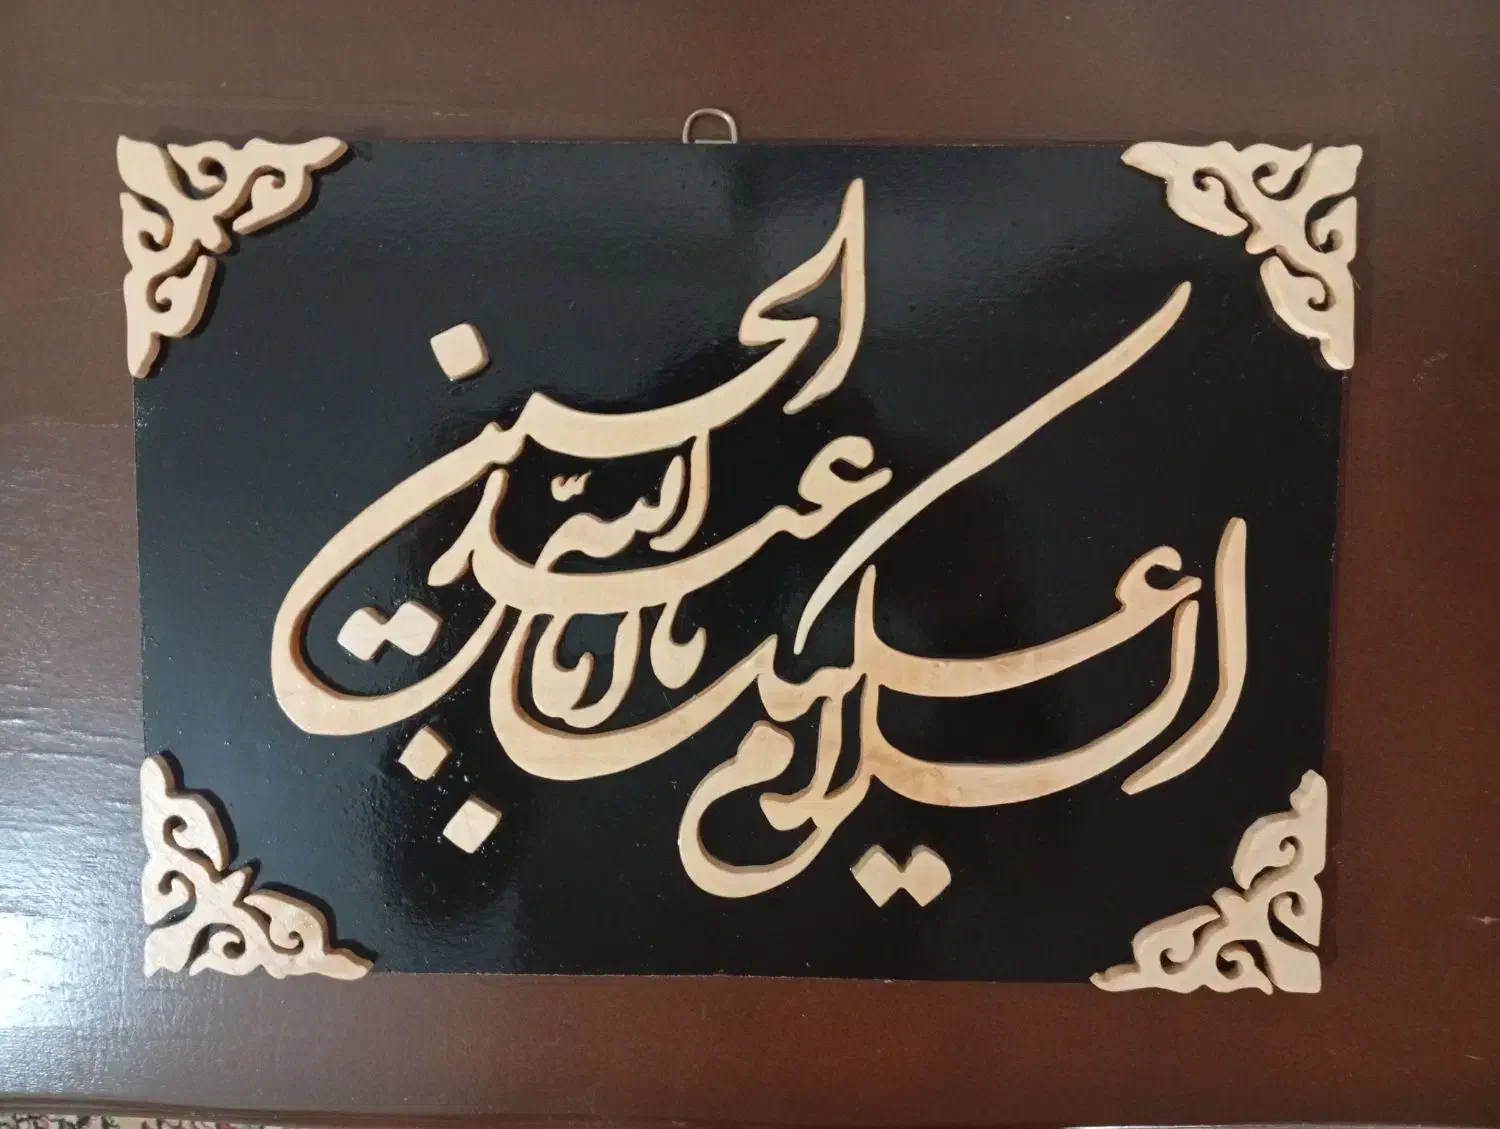 السلام علیک یا ابا عبد اللّه الحسین